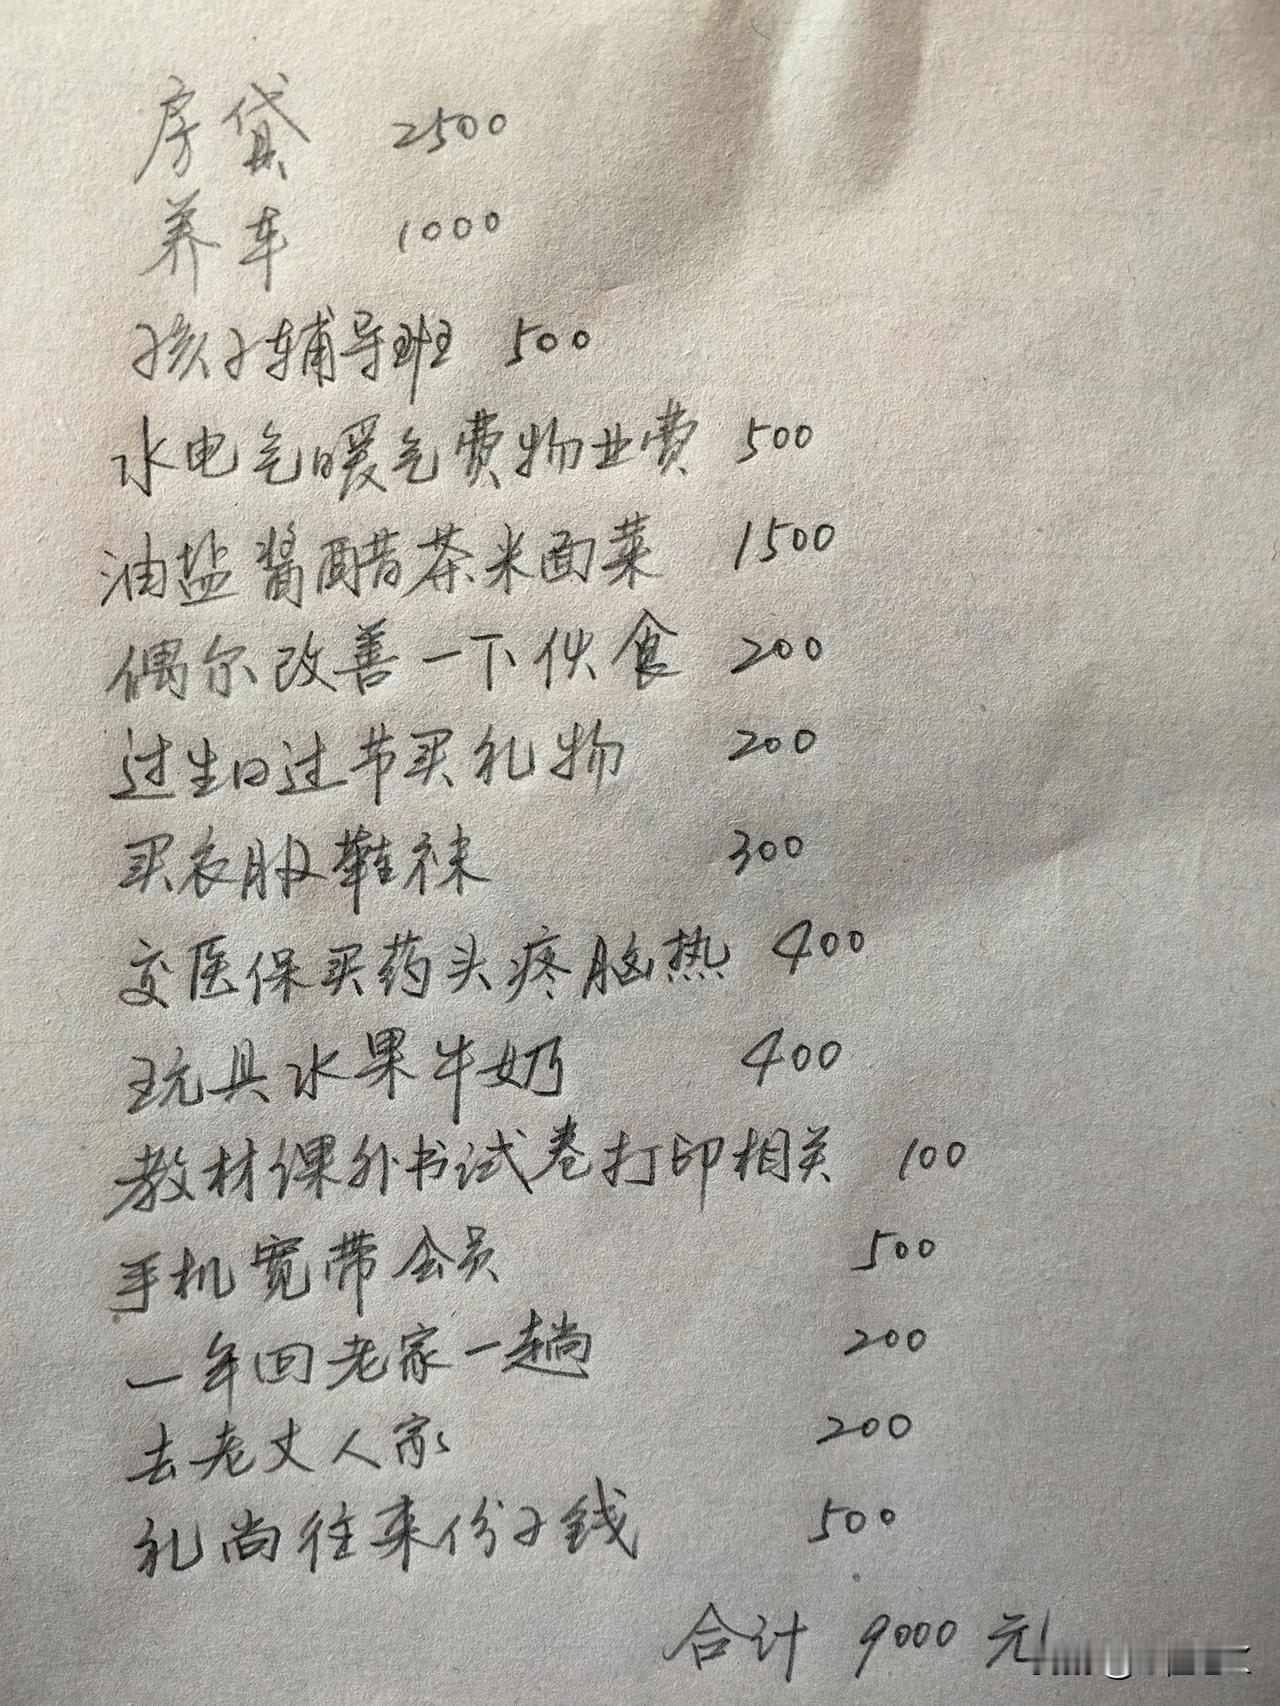 房贷 2500
养车 1000
孩子辅导班 500
水电气暖气费物业费 500
油盐酱醋茶米面菜 1500
偶尔改善一下伙食 200
过生日过节买礼物 200
买衣服鞋袜 300
交医保买药头疼脑热 400
玩具水果牛奶 400
教材课外书试卷打印相关 100
手机宽带会员 500
一年回老家一趟 200
去老丈人家 200
礼尚往来份子钱 500
合计 9000元